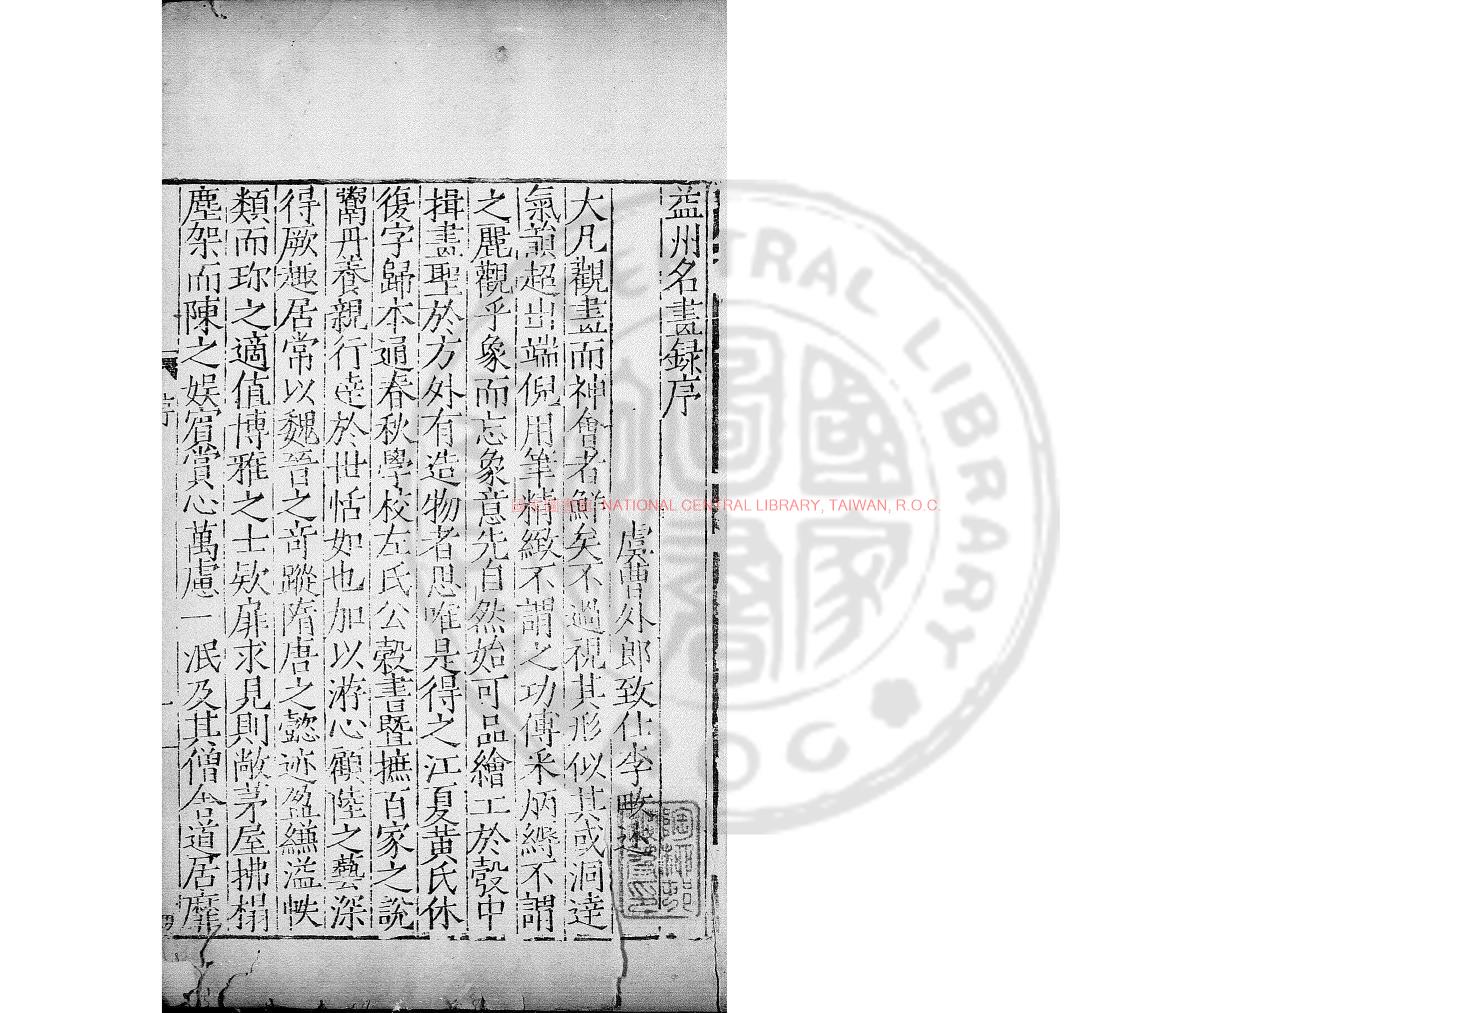 益州名畫録序
虞曹外郎致仕李畋述
大凡觀畫而神會者鮮矣不過視其形似其或洞達
氣韻超出端倪用筆精緻不謂之功傅采炳縟不謂
之麗觀乎象而忘象意先自然始可品繪工於彀中
揖畫聖於方外有造物者思唯是得之江夏黄氏休
復字歸本通春秋學校左氏公穀書暨摭百家之說
鬻丹養親行達於世恬如也加以游心顧陸之藝深
得厥趣居常以魏晉之竒蹤隋唐之懿迹盈縑溢帙
類而珎之適值博雅之士欵扉求見則敞茅屋拂榻
塵架而陳之娱賓賞心萬慮一泯及其僧舍道居靡
NATIONAL CENTRAL LIBRARY, TAIWAN, R.O.C.
CENTRAL LIBRARY
ROC